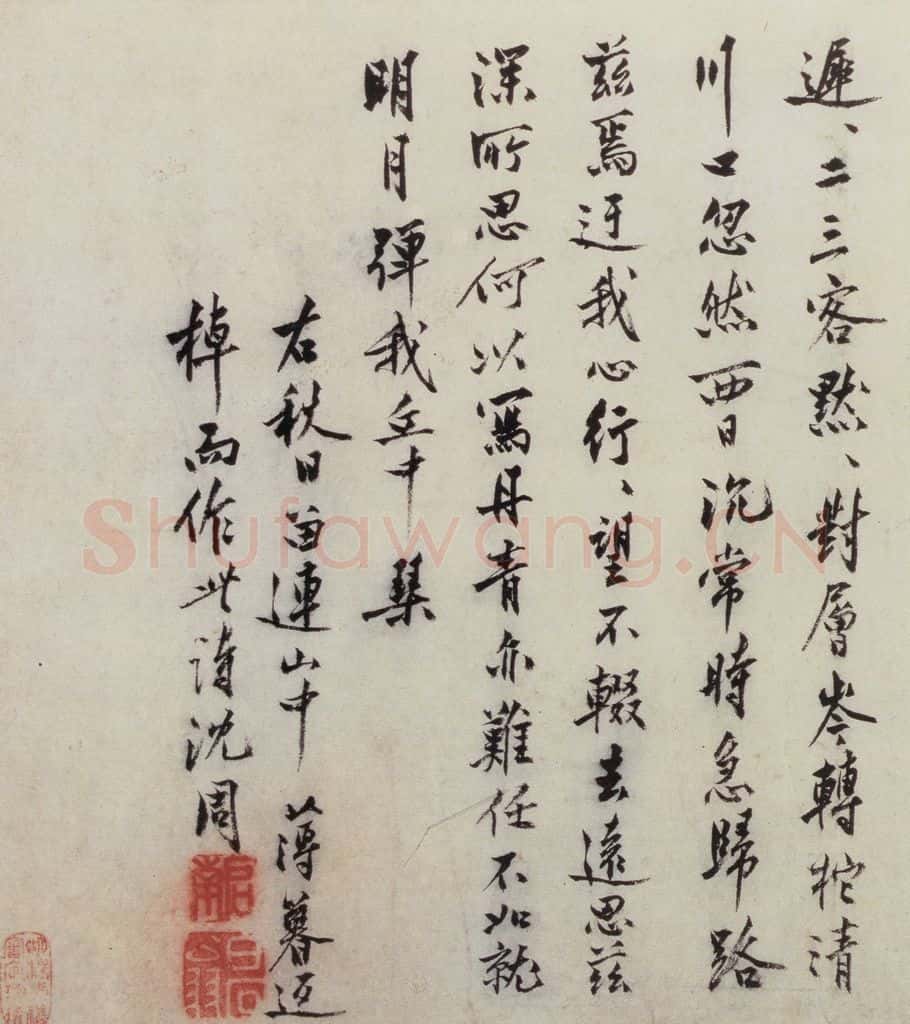 遲、二三客黙、對層岑轉柁清
川口忽然西日沉常時急歸路
茲焉迂我心行、望不輟去遠思茲
深所思何以寫丹青亦難任不如就
明月彈我丘中琴
右秋日留連山中薄暮迴
棹而作此詩沈周
Shufawang.CN